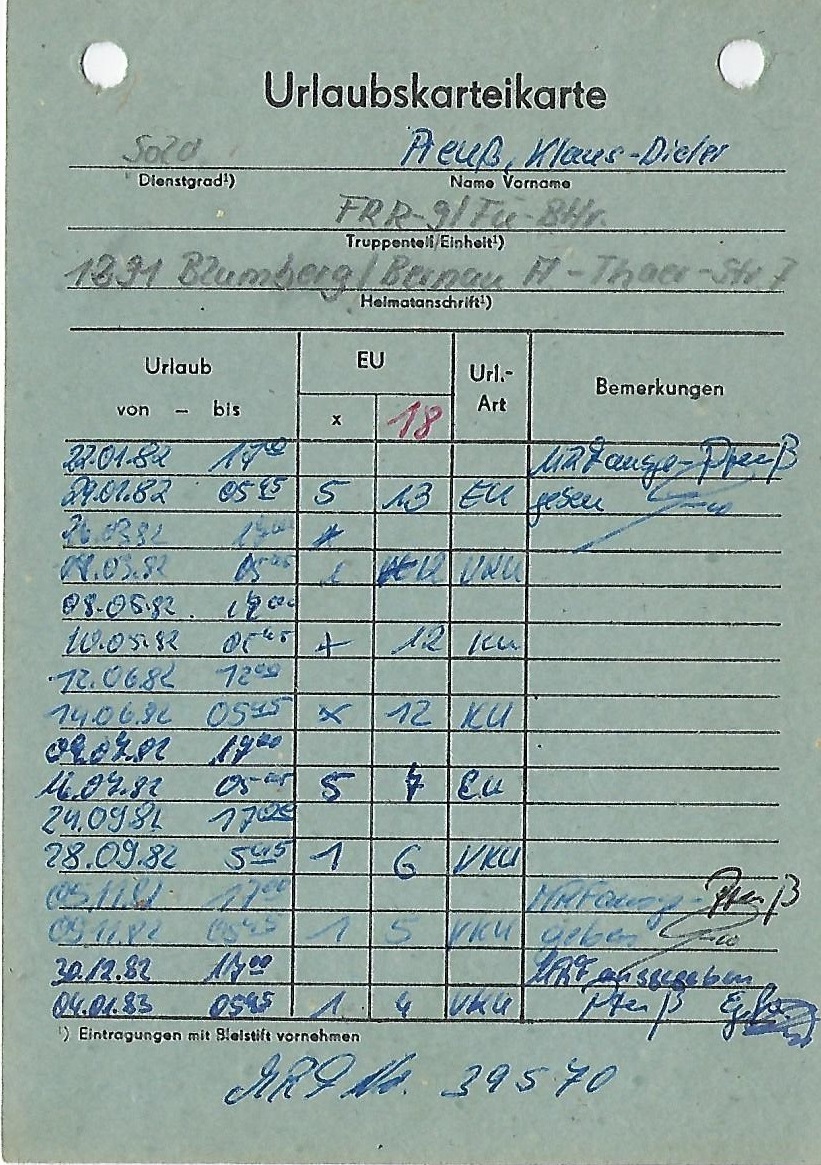 Urlaubskarteikarte
Sold Preuß, Klaus-Dieter
Dienstgrad¹) Name Vorname
FRR-9/Fü-Bttr.
Truppenteil/Einheit¹)
1291 Blumberg/Bernau A-Thaer-Str. 7
Heimatanschrift¹)
Urlaub EU Url.- Bemerkungen
von – bis x 18 Art
22.01.82 17⁰⁰ ausge- Preuß
29.01.82 05⁴⁵ 5 13 EU geben
03.82
03.82 12 VKU
08.05.82
10.05.82 05⁴⁵ + 12 KU
12.06.82 12⁰⁰
14.06.82 05⁴⁵ x 12 KU
09.07.82 17⁰⁰
16.07.82 05⁴⁵ 5 7 EU
24.09.82 17⁰⁰
28.09.82 5⁴⁵ 1 6 VKU
05.11.82 17⁰⁰ ausge- Preuß
09.11.82 05⁴⁵ 1 5 VKU geben
30.12.82 17⁰⁰ ausgegeben
04.01.83 05⁴⁵ 1 4 VKU Preuß
¹) Eintragungen mit Bleistift vornehmen
Nr. 39570